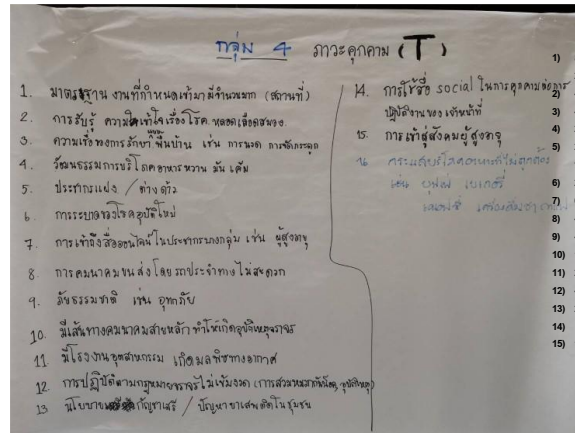 กลุ่ม 4 ภาวะคุกคาม (T)
1. มาตรฐานงานที่กำหนดเข้ามามีจำนวนมาก (สถานที่)
2. การรับรู้ ความเข้าใจเรื่องโรคหลอดเลือดสมอง
3. ความเชื่อของการรักษาพื้นบ้าน เช่น การนวด การจัดกระดูก
4. วัฒนธรรมการบริโภคอาหารหวาน มัน เค็ม
5. ประชากรแฝง / ต่างด้าว
6. การระบาดของโรคอุบัติใหม่
7. การเข้าถึงสื่อออนไลน์ในประชากรบางกลุ่ม เช่น ผู้สูงอายุ
8. การคมนาคมขนส่งโดยรถประจำทางไม่สะดวก
9. ภัยธรรมชาติ เช่น อุทกภัย
10. มีเส้นทางคมนาคมสายหลักทำให้เกิดอุบัติเหตุจราจร
11. มีโรงงานอุตสาหกรรม เกิดมลพิษทางอากาศ
12. การปฏิบัติตามกฎหมายจราจรไม่เข้มงวด (การสวมหมวกกันน็อค, อุบัติเหตุ)
13 นโยบายกัญชาเสรี / ปัญหายาเสพติดในชุมชน
14. การใช้สื่อ social ในการคุกคามต่อการ
ปฏิบัติงานของเจ้าหน้าที่
15. การเข้าสู่สังคมผู้สูงอายุ
16 กระแสบริโภคอาหารที่ไม่ถูกต้อง
เช่น บุฟเฟ่ เบเกอรี่
1)
2)
3)
4)
5)
6)
7)
8)
9)
10)
11)
12)
13)
14)
15)